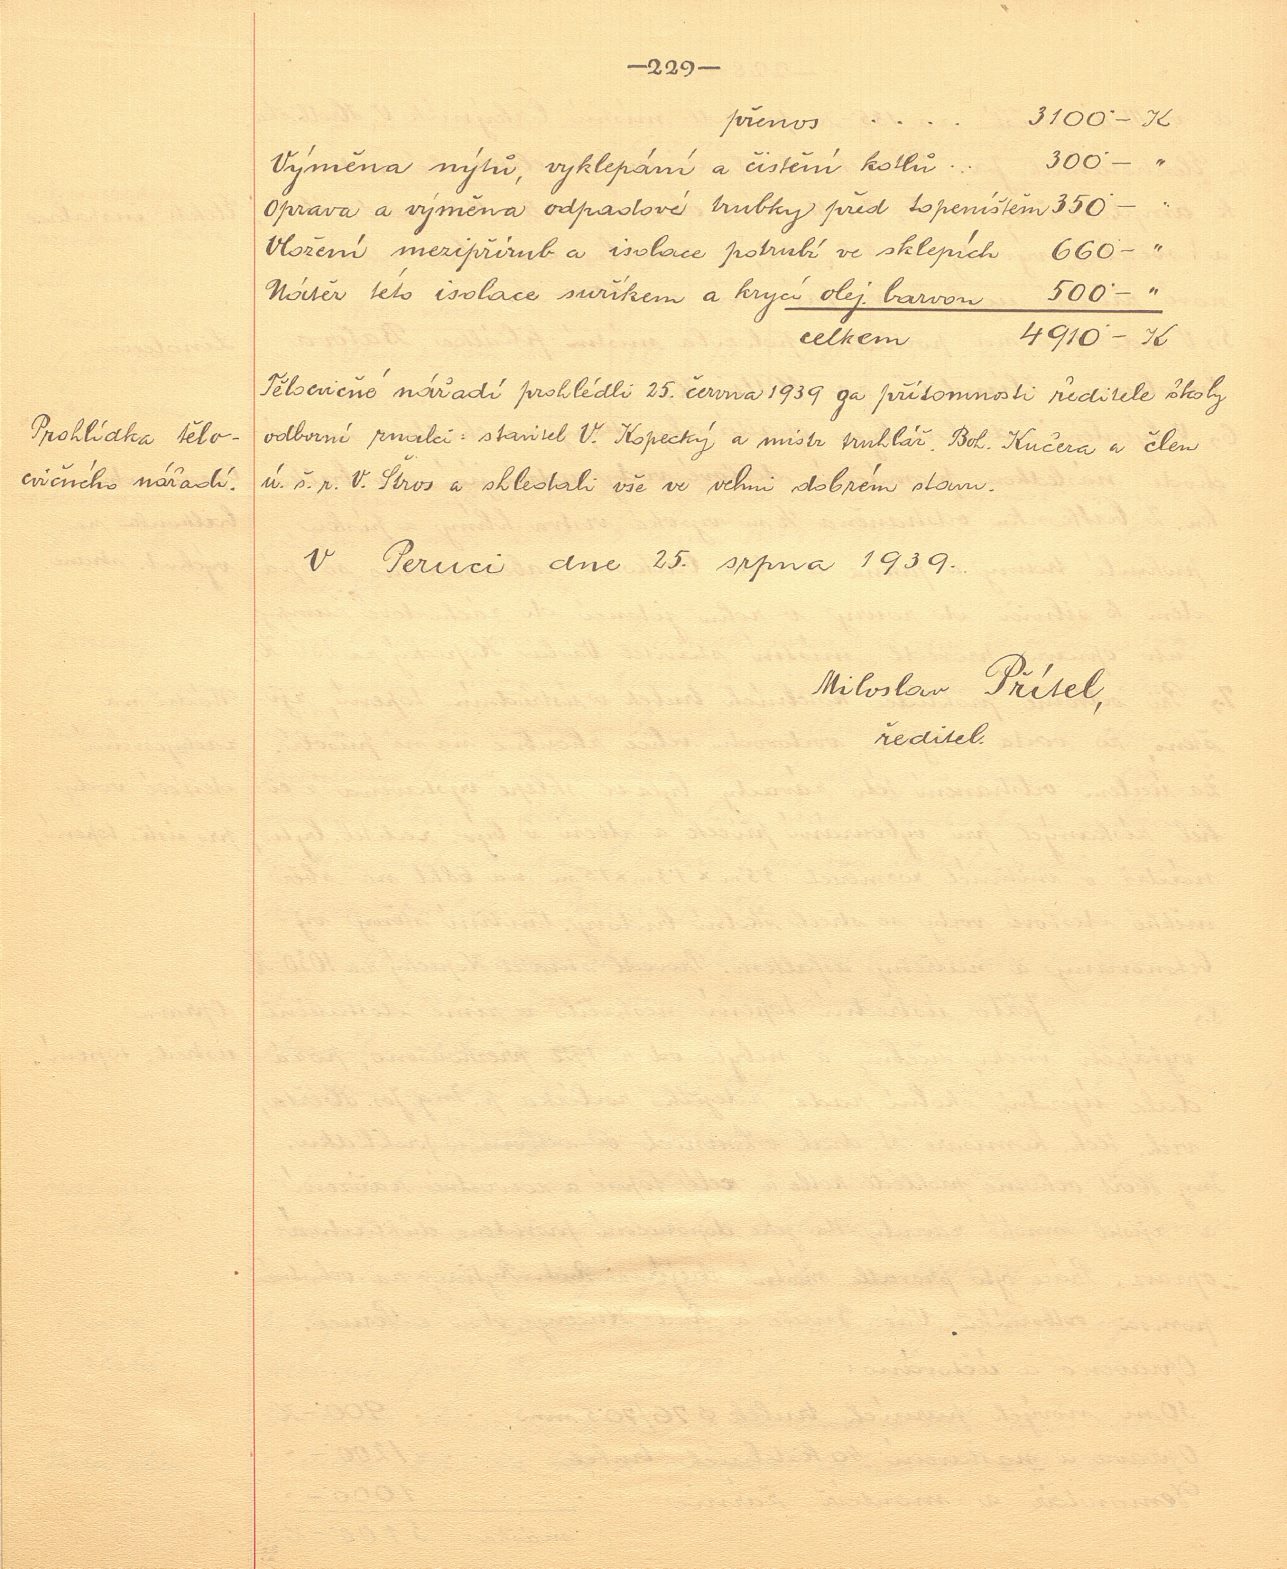 —229—
přenos . . . . 3100·– K
Výměna nýtů, vyklepání a čistění kotlů . . 300·– "
Oprava a výměna odpadové trubky před topeništěm 350·– "
Vložení mezipřírub a isolace potrubí ve sklepích 660·– "
Nátěr této isolace suříkem a krycí olej. barvou 500·– "
celkem 4910·– K
Tělocvičné nářadí prohlédli 25. června 1939 za přítomnosti ředitele školy
Prohlídka tělo-
cvičného nářadí.
odborní znalci: stavitel V. Kopecký a mistr truhlář. Boh. Kučera a člen
ú. š. r. V. Štros a shledali vše ve velmi dobrém stavu.
V Peruci dne 25. srpna 1939.
Miloslav Přítel,
ředitel.